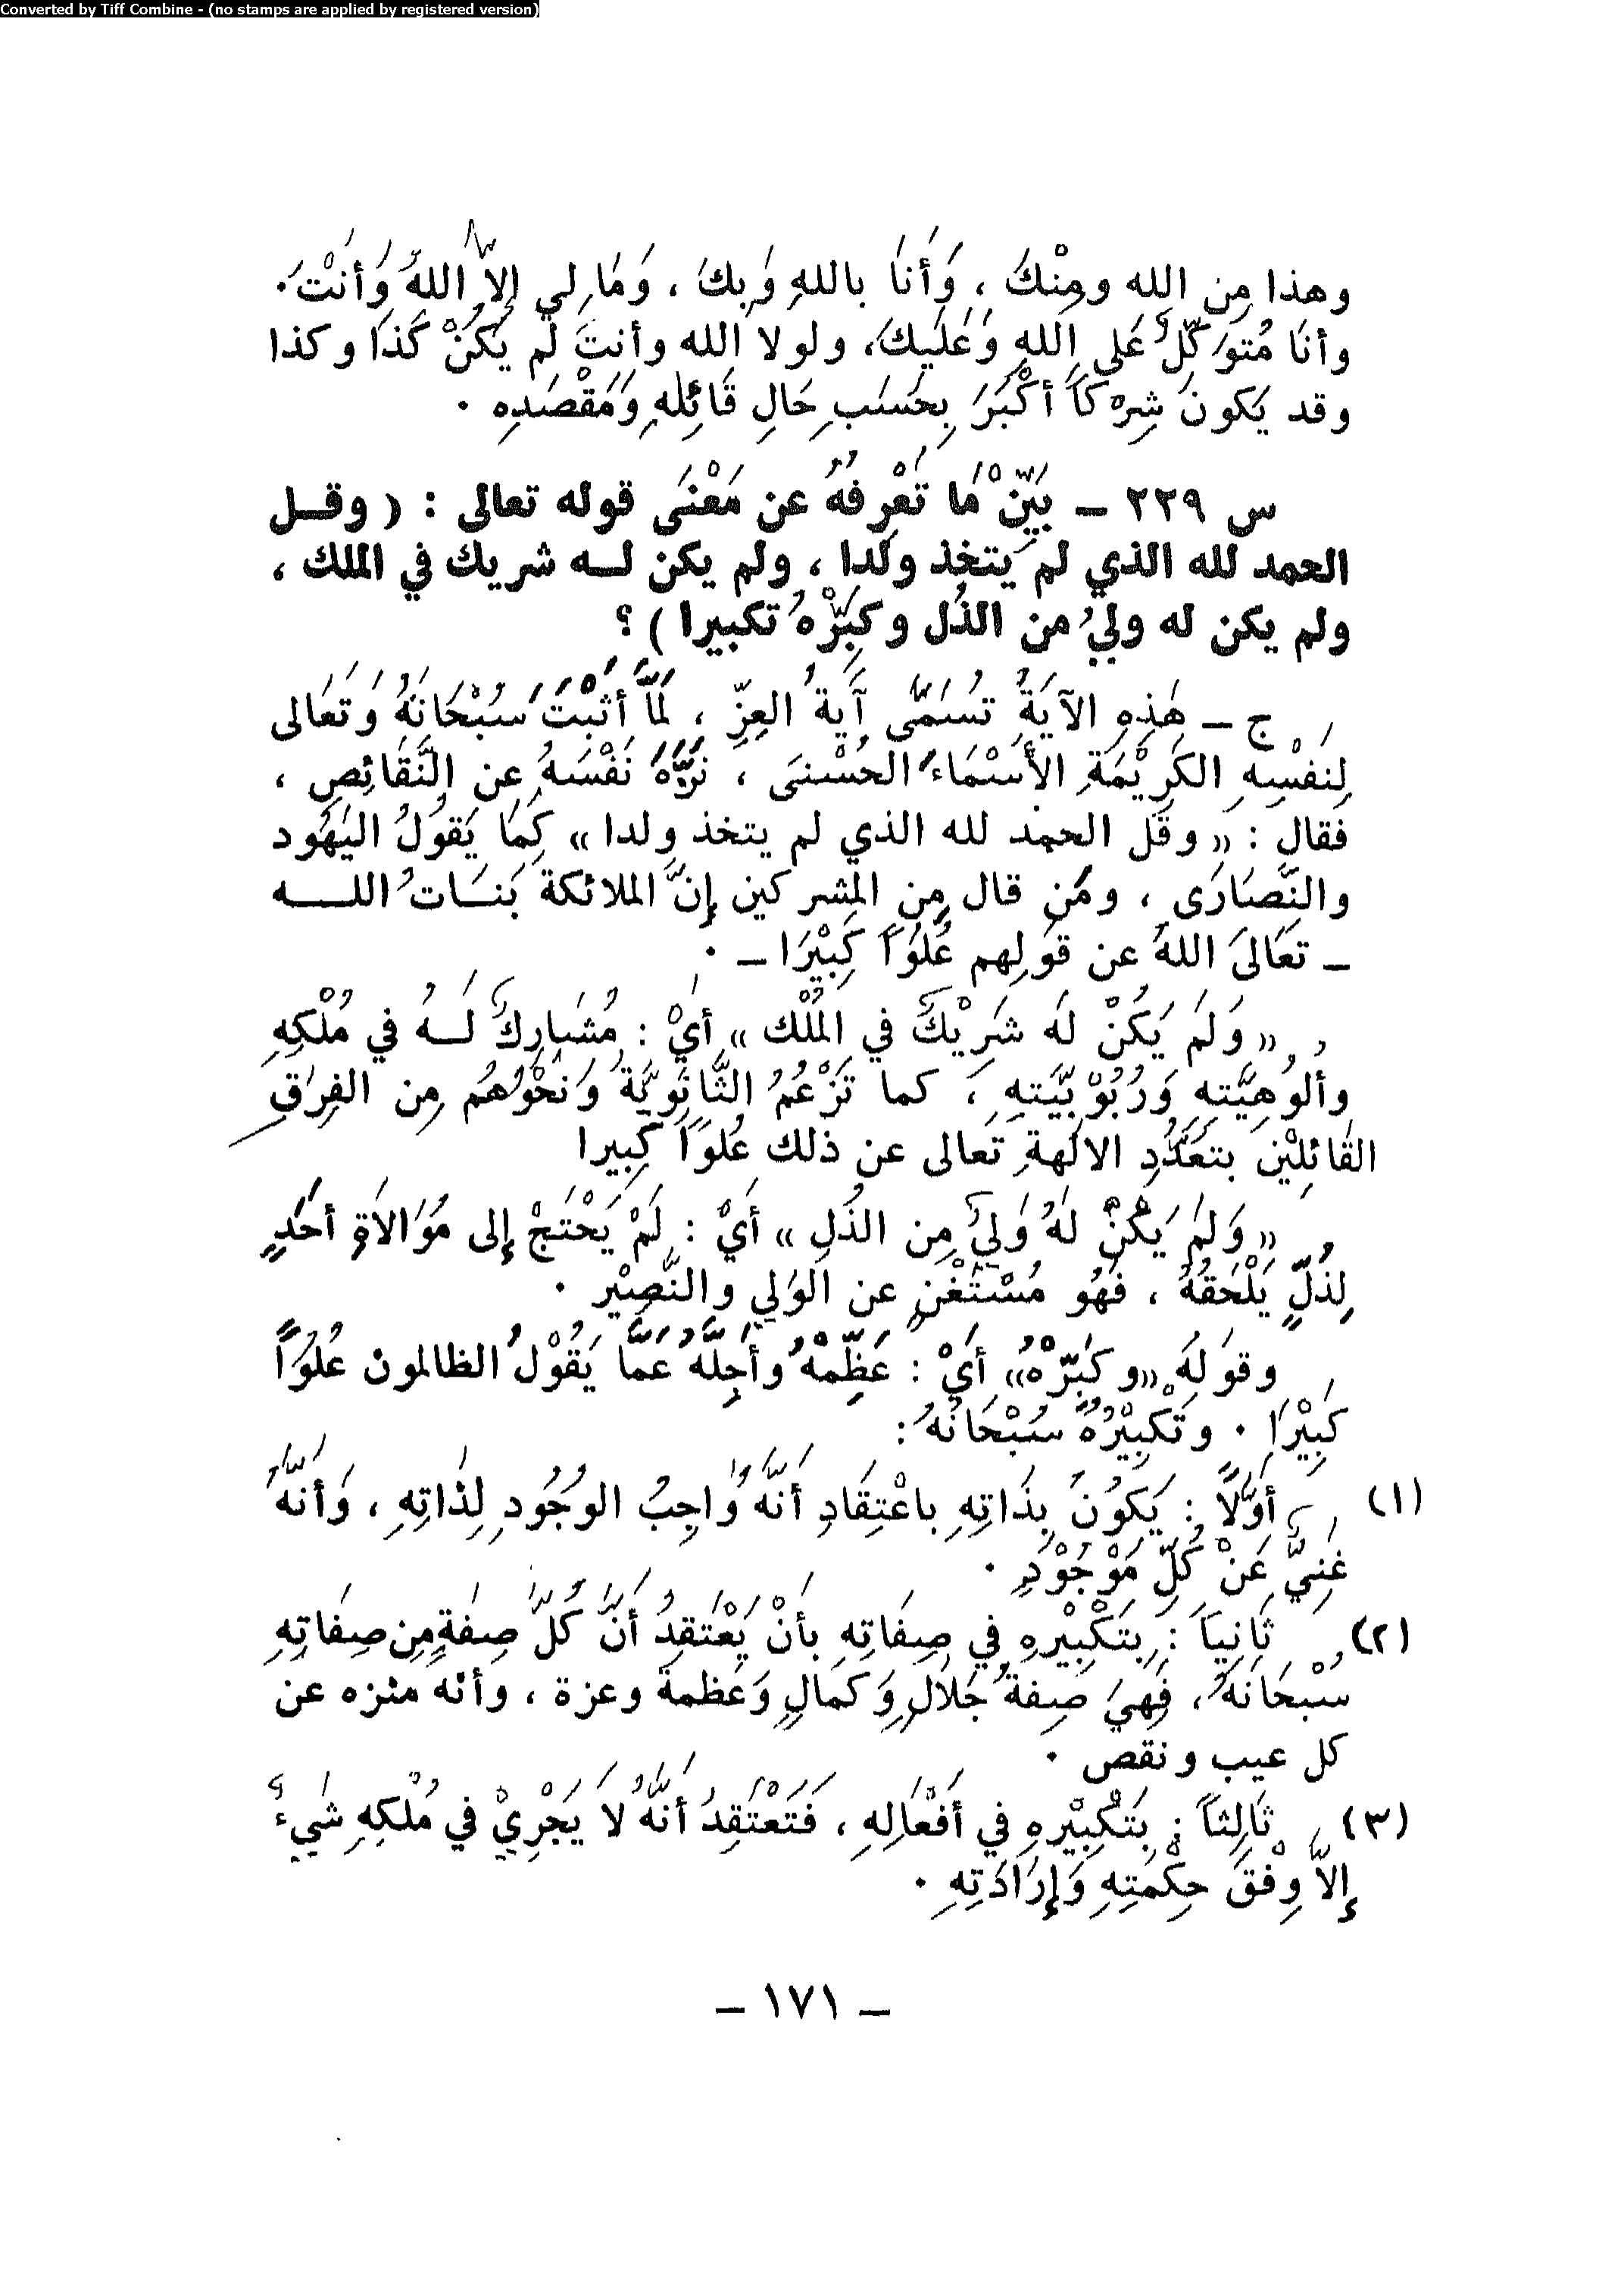 Converted by Tiff Combine - (no stamps are applied by registered version)
وهذا مِن الله ومِنْكَ ، وَأنَا باللهِ وَبِكَ ، وَمَا لي إلاَّ اللهُ وَأنْتَ .
وأنَا مُتوَكِّلٌ عَلى اللهِ وَعَلَيكَ، ولولا الله وأنتَ لَم يَكُنْ كَذَا وكذا
وقد يَكونَ شِرْكاً أكْبَرَ بِحَسَبِ حَالِ قَائِلِهِ وَمَقْصَدِهِ .
س ٢٢٩ – بَيِّنْ مَا تَعْرِفُهُ عن مَعْنَى قوله تعالى : ( وقـل
الحمد لله الذي لم يتخذ ولدا ، ولم يكن لـه شريك في الملك ،
ولم يكن له وليُ من الذُل وكَبِّرْهُ تكبيرا ) ؟
ج – هَذِهِ الآيَةُ تسَمَّى آيَةُ العِزِّ ، لَمَّا أثْبَتَ سُبْحَانَهُ وَتَعَالى
لِنفْسِهِ الكَرِيْمَةِ الأسْمَاءَ الحُسْنىَ ، نَزَّهَ نَفْسَهُ عن النَّقَائِصِ ،
فقال : « وقل الحمد لله الذي لم يتخذ ولدا » كَمَا يَقولُ اليَهُود
والنَّصَارَى ، ومَن قال مِن المشركين إنَّ الملائكة بَنـاتُ اللــه
– تعَالىَ اللهُ عن قولِهم عُلوَاً كَبِيْرَا – .
« وَلمَ يَكُنْ لَه شَرِيْكٌ في المُلْك » أيْ : مُشَارِكٌ لَـهُ في مُلْكِهِ
وألُوهِيَّتِهِ وَرُبُوْبِيَّتهِ ، كما تَزْعُمُ الثَّانَوِيَّةُ وَنَحْوُهُم مِن الفِرَقِ
القَائِلِيْن بتعَدُّدِ الالَهةِ تَعالى عن ذلك عُلوَاً كبيرا
« وَلمَ يَكُنْ لهُ وَليٌ مِن الذُلِ » أيْ : لَمْ يَحْتَجْ إلى مُوَالاَةِ أحَدٍ
لِذُلٍّ يَلْحَقهُ ، فهُو مُسْتَغْنٍ عن الوَلي والنَّصِيْر .
وقوَلهَ «وكَبِّرْهُ» أيْ : عَظِّمْهُ وأجِلَّهُ عَمَّا يَقُوْلُ الظالمون عُلُوَاً
كَبِيْرَا . وَتَكبِيْرُهُ سُبْحَانَهُ :
(١) أوَّلاً : يَكونَ بِذَاتِهِ باعْتِقَادِ أنَّهُ وَاجِبُ الوجُود لِذَاتِهِ ، وَأنَّهُ
غَنِيٌّ عَنْ كُلِّ مَوْجُوْدٍ .
(٢) ثَانِياً : بِتَكْبِيْرهِ في صِفَاتِهِ بأنْ يَعْتَقِدُ أنَّ كُلَّ صِفةٍ مِن صِفاتِهِ
سُبْحَانَهُ ، فَهيَ صِفةُ جَلاَلٍ وَكمَالٍ وَعَظمةَ وعزة ، وأنه منزه عن
كل عيب ونقص .
(٣) ثَالِثاً : بِتَكْبِيْرهِ في أفْعَالِهِ ، فَتَعْتَقِدُ أنَّهُ لا يَجْرِيْ في مُلكِهِ شيءٌ
إلاَّ وِفْقَ حِكْمَتِهِ وَإرَادَتِهِ .
– ١٧١ –